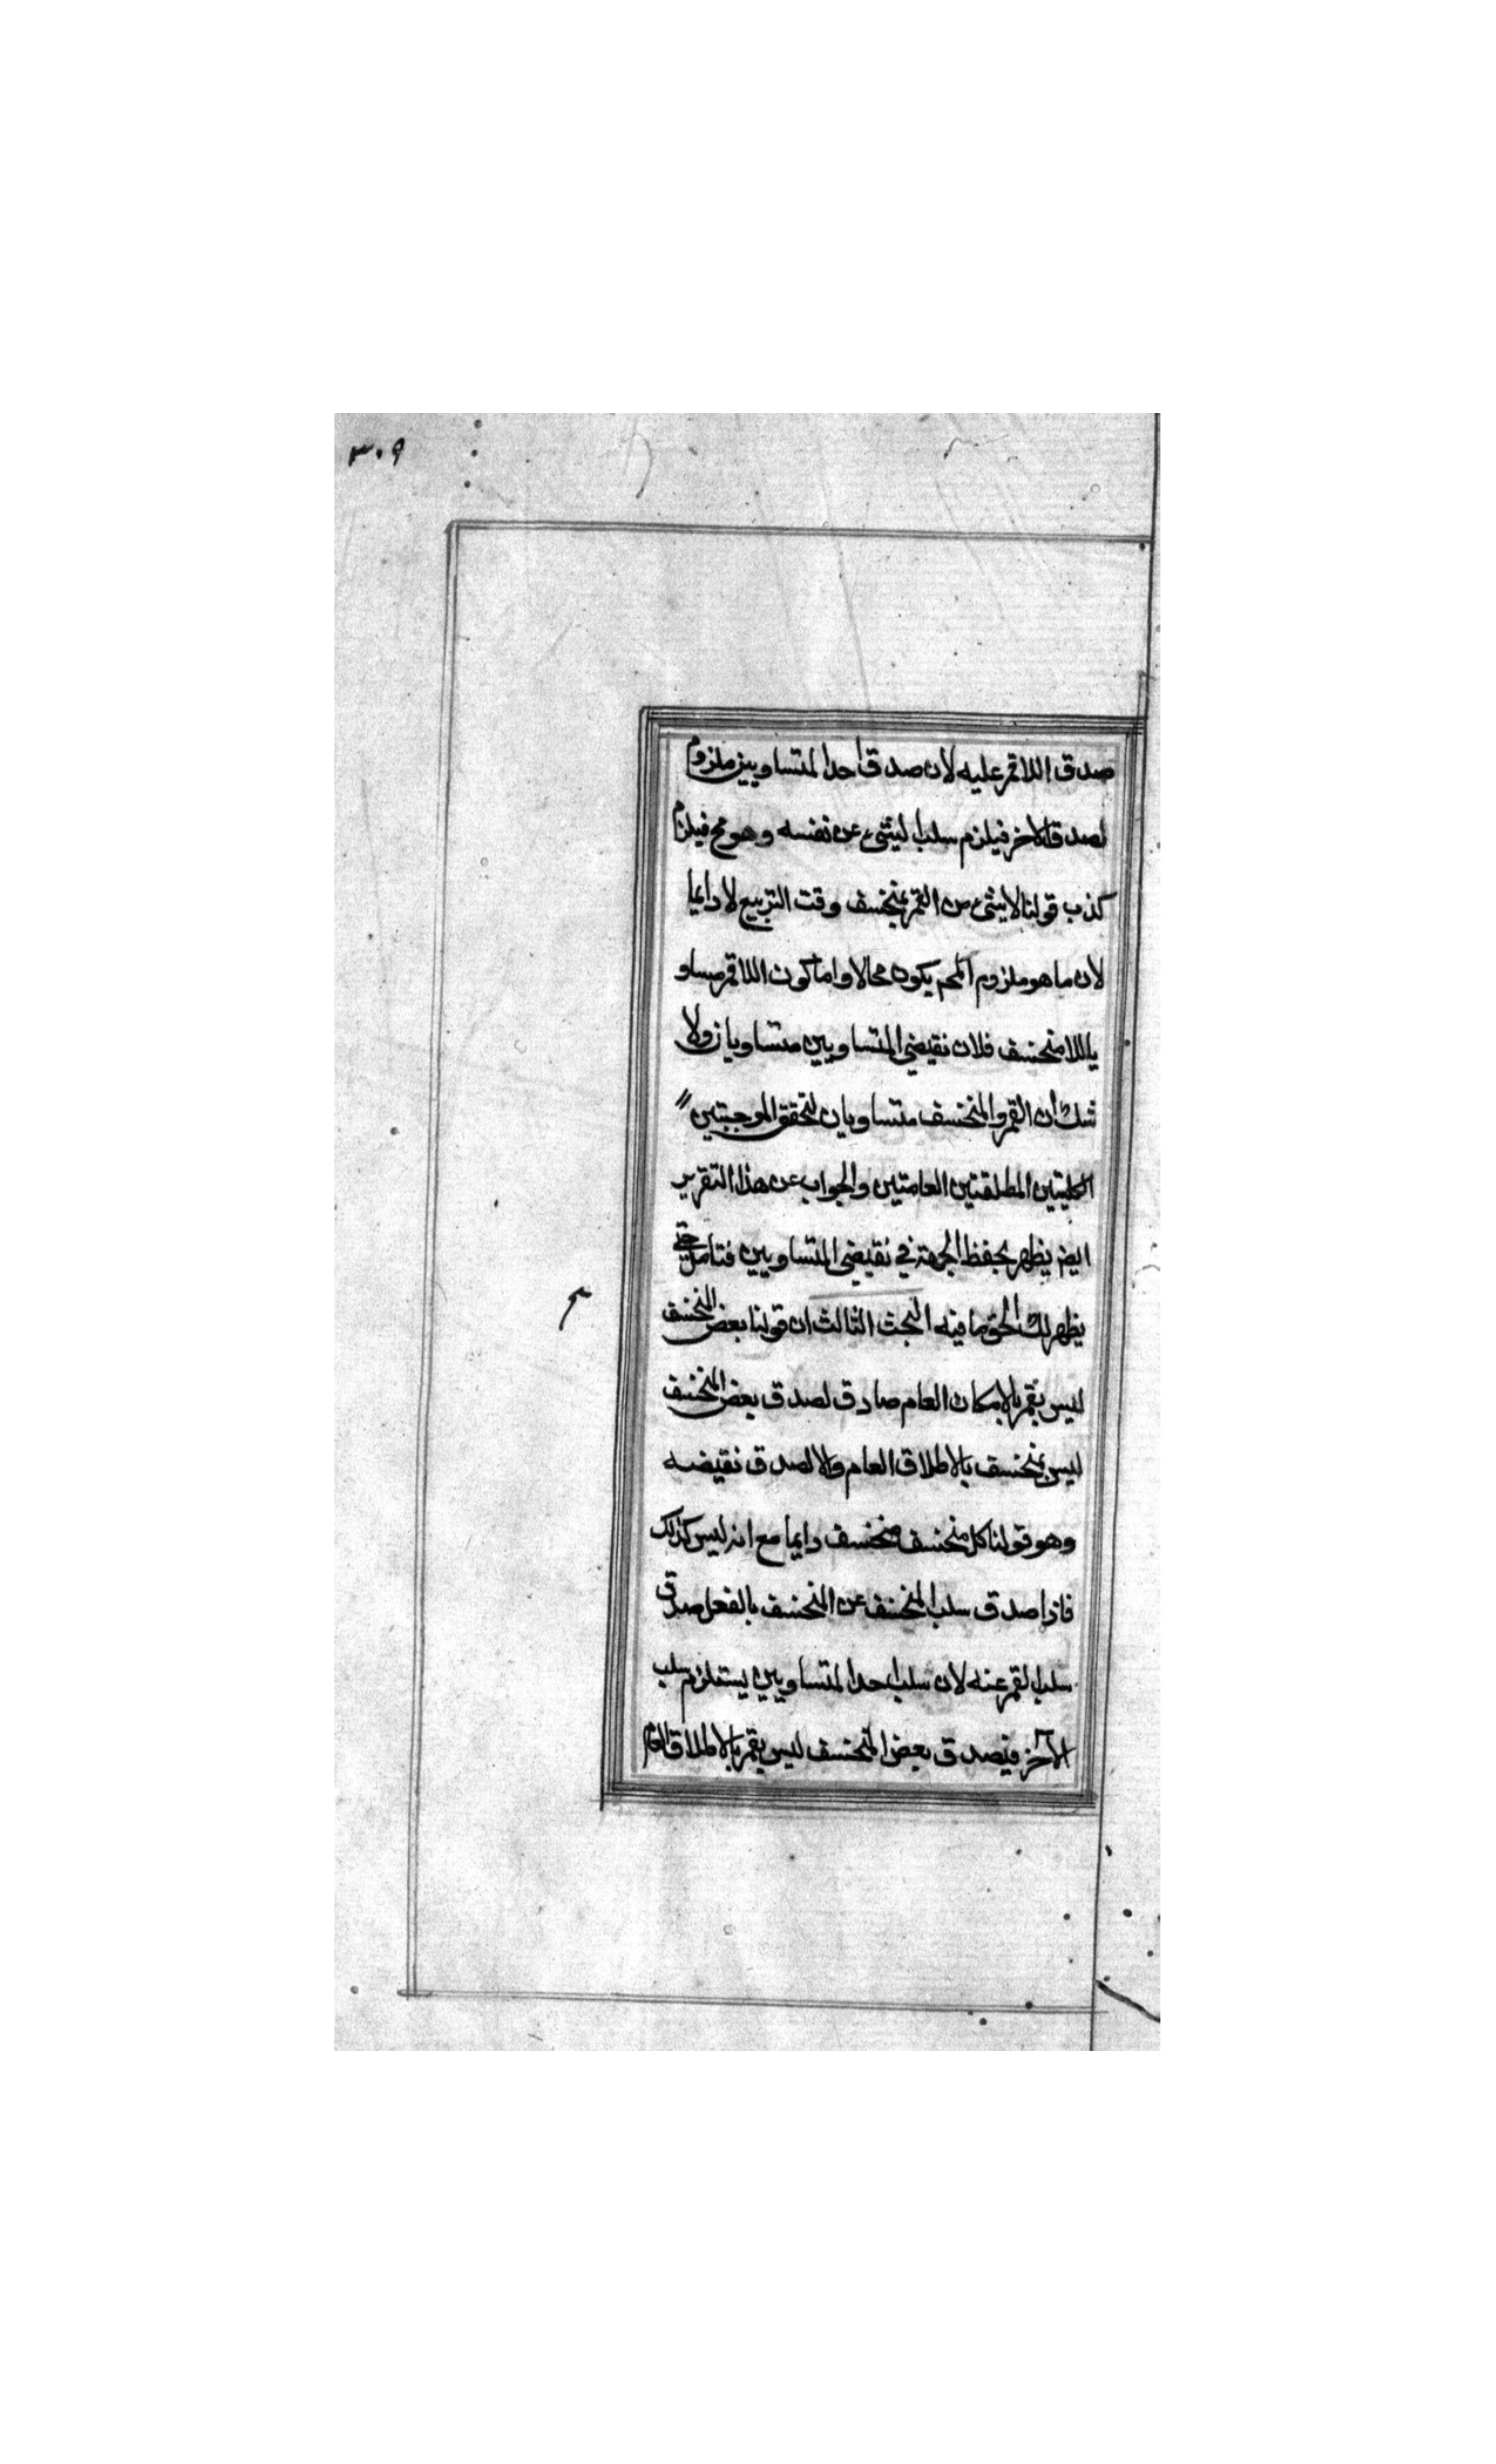 ۳۰۹
صدق اللاقمر عليه لان صدق احد المتساويين ملزوم
لصدق الاخر فيلزم سلب الشئ عن نفسه وهو مح فيلزم
كذب قولنا لا شئ من القمر بمنخسف وقت التربيع لا دايما
لان ما هو ملزوم المح يكون محالا واما كون اللاقمر مساو
ياللا منخسف فلان نقيضي المتساويين متساويان ولا
شك ان القمر والمنخسف متساويان لتحقق الموجبتين
الكليتين المطلقتين العامتين والجواب عن هذا التقرير
ايضم يظهر بحفظ الجهة في نقيضي المتساويين فتامل حتى
يظهر لك الحق وما فيه البحث الثالث ان قولنا بعض المنخسف
ليس بقمر بالامكان العام صادق لصدق بعض المنخسف
ليس بمنخسف بالاطلاق العام والا لصدق نقيضه
وهو قولنا كل منخسف منخسف دايما مع انه ليس كذلك
فاذا صدق سلب المنخسف عن المنخسف بالفعل صدق
سلب القمر عنه لان سلب احد المتساويين يستلزم سلب
الآخر فيصدق بعض المنخسف ليس بقمر بالاطلاق العام